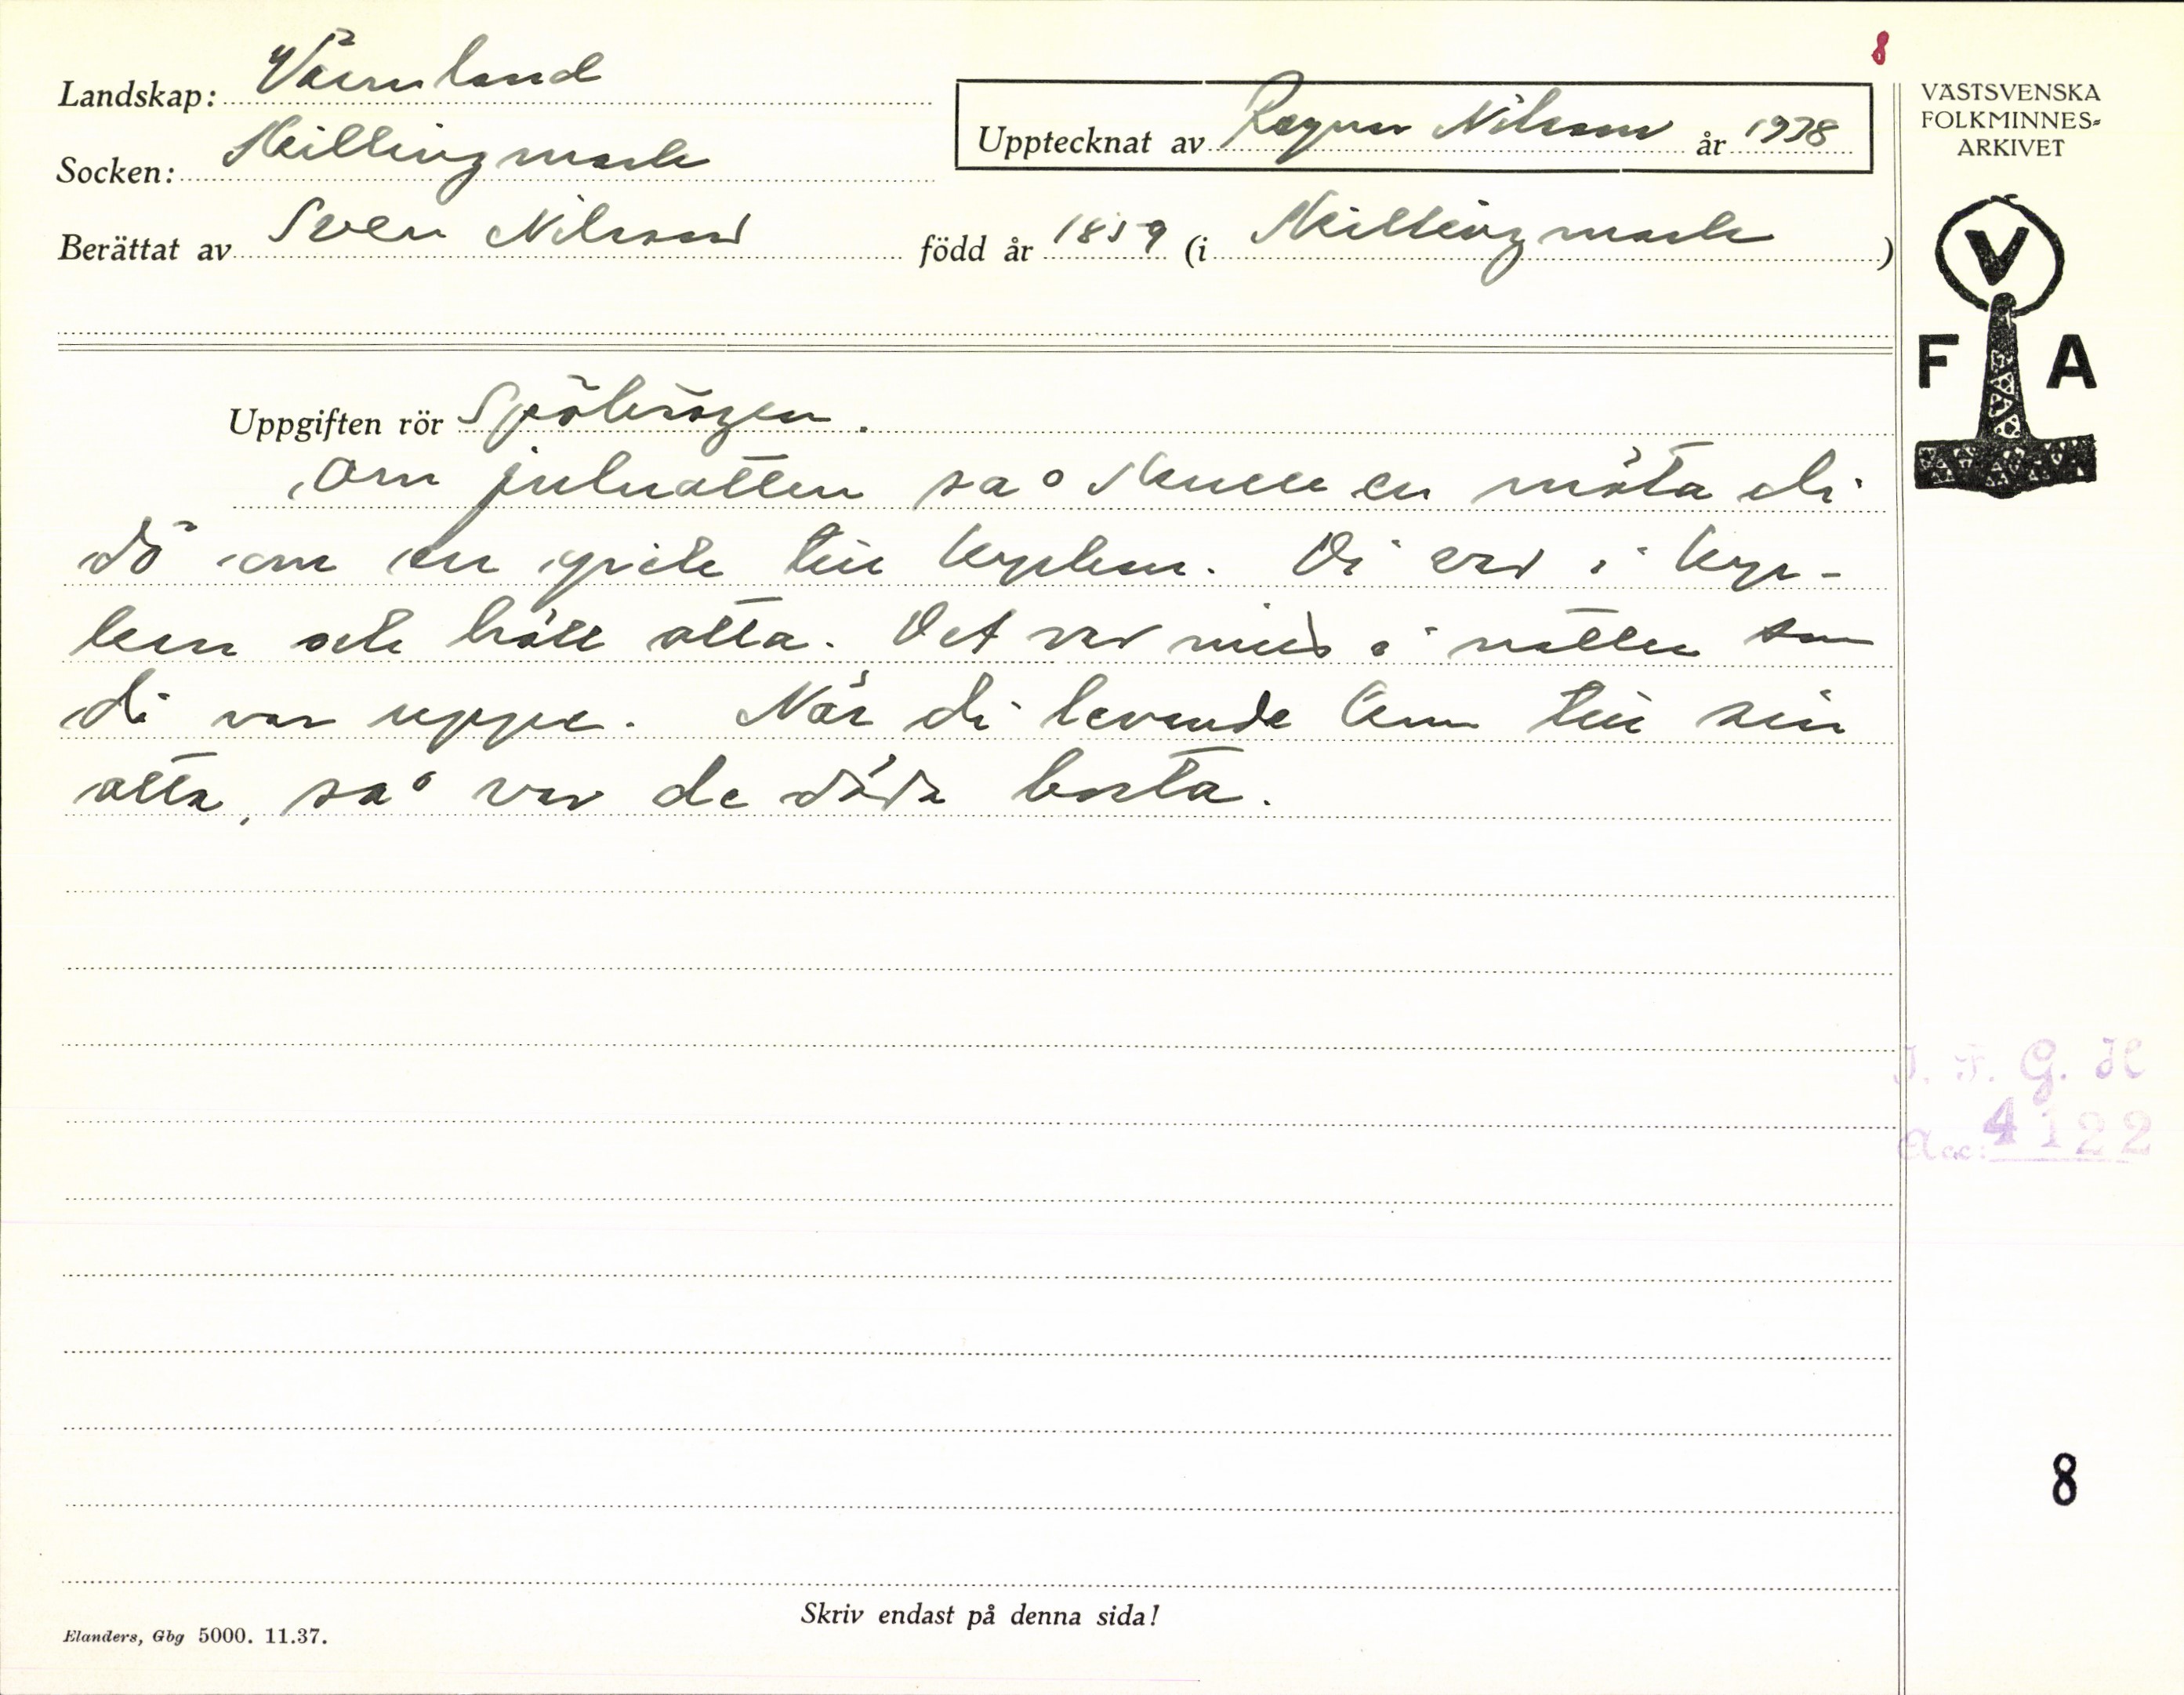 8
Landskap: Värmland
Socken: Skillingmark
Upptecknat av Ragnar Nilsson år 1938
Berättat av Sven Nilsson född år 1859 (i Skillingmark)
VÄSTSVENSKA
FOLKMINNES-
ARKIVET
V
F A
Uppgiften rör Spökerier.
Om julnatten så kunne en möta di
dö om en gick till kyrken. Di var i kyr-
ken och höll otta. Det var midd i natten som
di var uppe. När di levende kom till sin
otta, så var de döda borta.
I. F. G. H
Acc: 4122
8
Skriv endast på denna sida!
Elanders, Gbg 5000. 11.37.